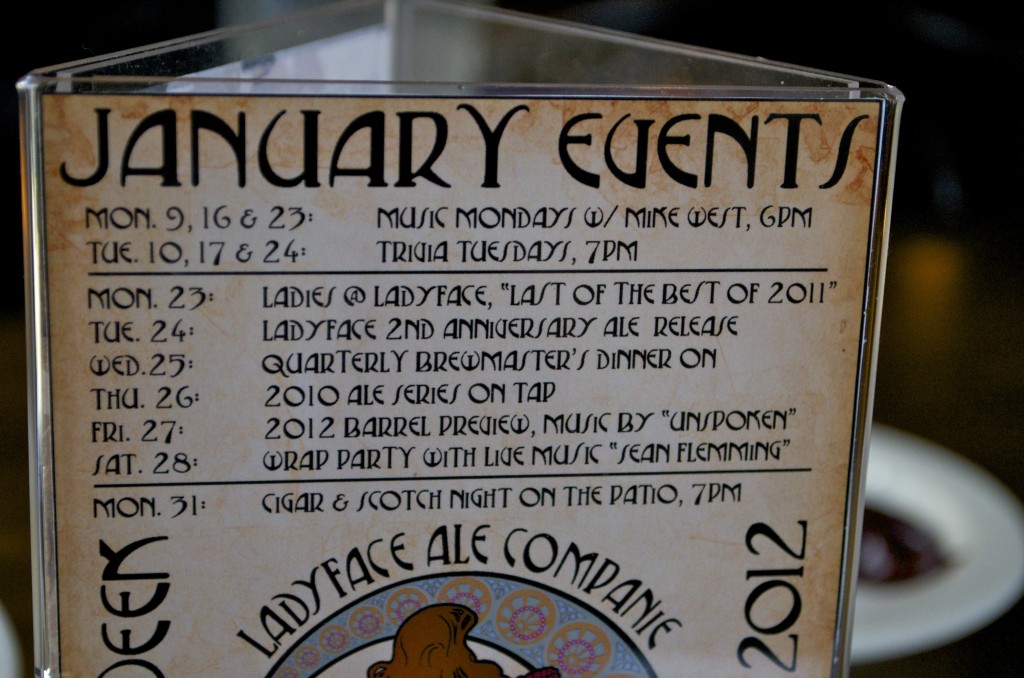 JANUARY EVENTS
MON. 9, 16 & 23: MUSIC MONDAYS W/ MIKE WEST, 6PM
TUE. 10, 17 & 24: TRIVIA TUESDAYS, 7PM
MON. 23: LADIES @ LADYFACE, "LAST OF THE BEST OF 2011"
TUE. 24: LADYFACE 2ND ANNIVERSARY ALE RELEASE
WED. 25: QUARTERLY BREWMASTER'S DINNER ON
THU. 26: 2010 ALE SERIES ON TAP
FRI. 27: 2012 BARREL PREVIEW, MUSIC BY "UNSPOKEN"
SAT. 28: WRAP PARTY WITH LIVE MUSIC "SEAN FLEMMING"
MON. 31: CIGAR & SCOTCH NIGHT ON THE PATIO, 7PM
LADYFACE ALE COMPANIE
2012